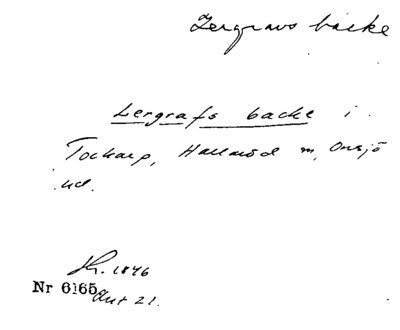 Lergravs backe
Lergrafs backe i
Tockarp, Hallaröd m, Onsjö
hd.
Kr. 1846
Nr 6165 Ant 21.